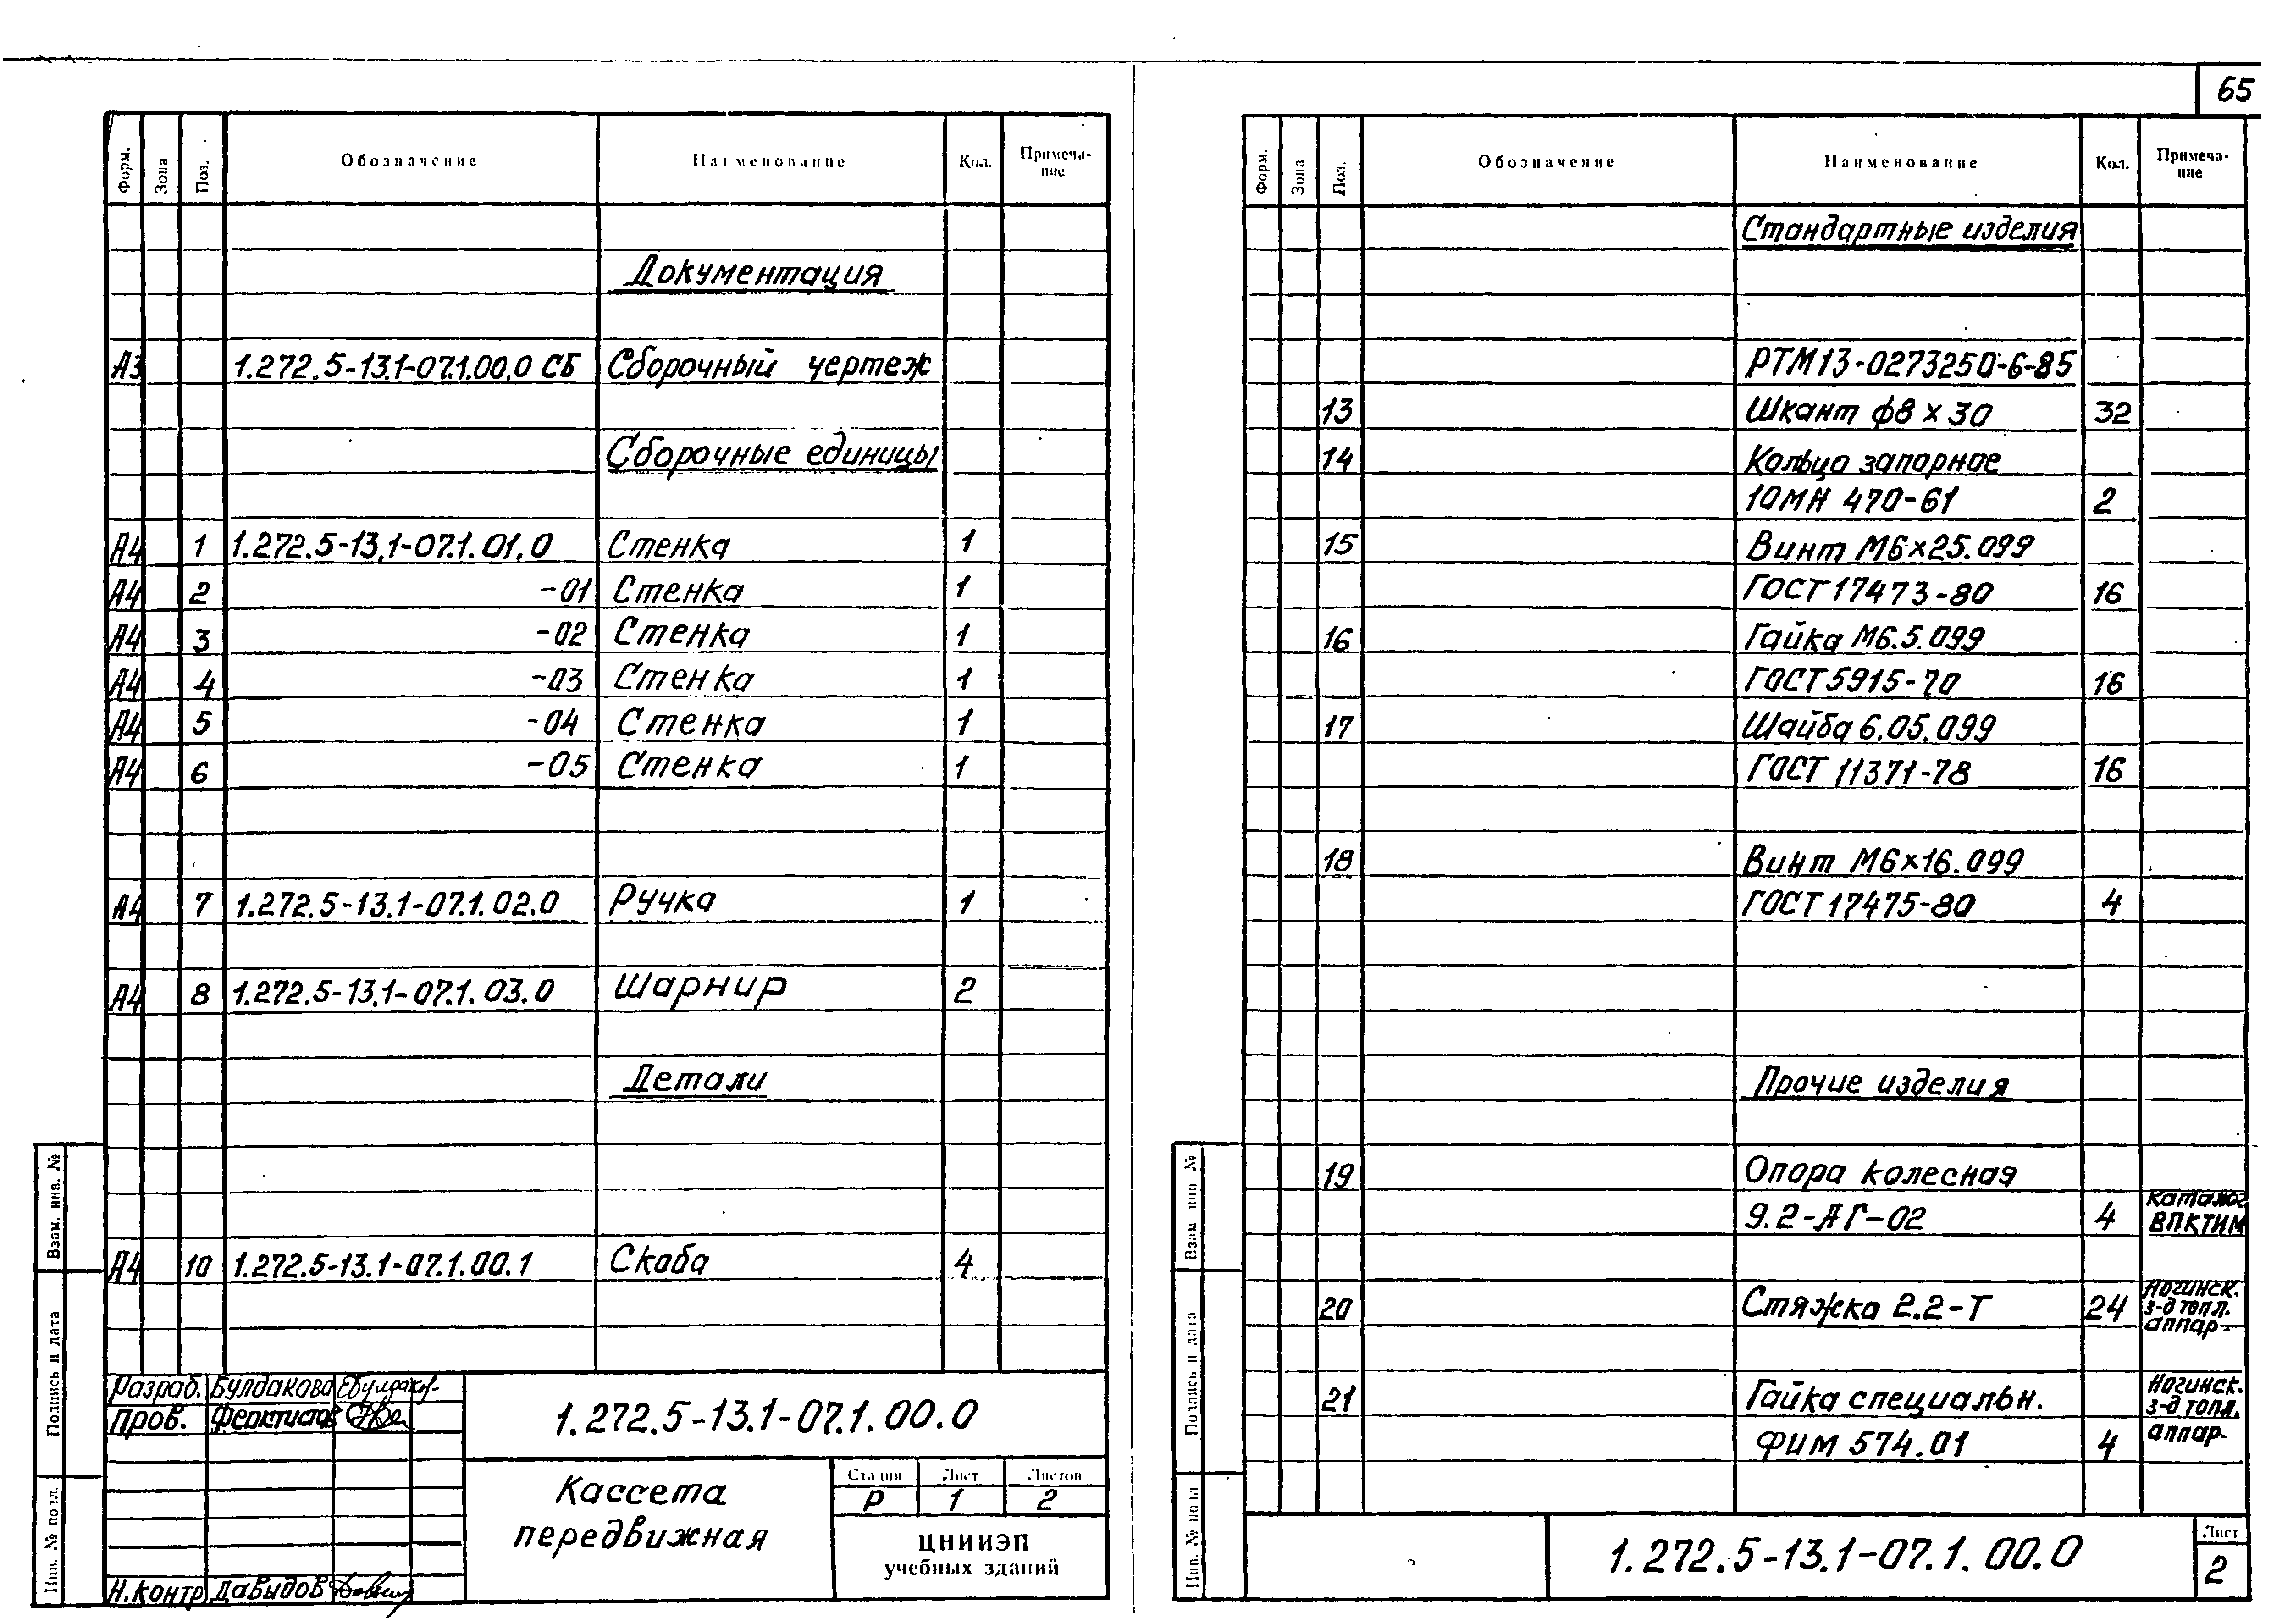 65
Форм. Зона Поз. Обозначение Наименование Кол. Примеча-
ние
Документация
А3 1.272.5-13.1-07.1.00.0 СБ Сборочный чертеж
Сборочные единицы
А4 1 1.272.5-13.1-07.1.01.0 Стенка 1
А4 2 -01 Стенка 1
А4 3 -02 Стенка 1
А4 4 -03 Стенка 1
А4 5 -04 Стенка 1
А4 6 -05 Стенка 1
А4 7 1.272.5-13.1-07.1.02.0 Ручка 1
А4 8 1.272.5-13.1-07.1.03.0 Шарнир 2
Детали
А4 10 1.272.5-13.1-07.1.00.1 Скоба 4
Взам. инв. №
Подпись и дата
Инв. № подл.
Разраб. Булдакова
Пров. Феоктистов
Н.контр Давыдов
1.272.5-13.1-07.1.00.0
Кассета
передвижная
Стадия Лист Листов
Р 1 2
ЦНИИЭП
учебных зданий
Форм. Зона Поз. Обозначение Наименование Кол. Примеча-
ние
Стандартные изделия
РТМ13-0273250-6-85
13 Шкант ф8 х 30 32
14 Кольцо запорное
10МН 470-61 2
15 Винт М6×25.099
ГОСТ17473-80 16
16 Гайка М6.5.099
ГОСТ5915-70 16
17 Шайба 6.05.099
ГОСТ 11371-78 16
18 Винт М6×16.099
ГОСТ17475-80 4
Прочие изделия
19 Опора колесная
9.2-АГ-02 4 каталог
ВПКТИМ
20 Стяжка 2.2-Т 24 Ногинск.
з-д топл.
аппар-
21 Гайка специальн. Ногинск.
з-д топл.
ФИМ 574.01 4 аппар-
Взам инв №
Подпись и дата
Инв. № подл
1.272.5-13.1-07.1.00.0
Лист
2